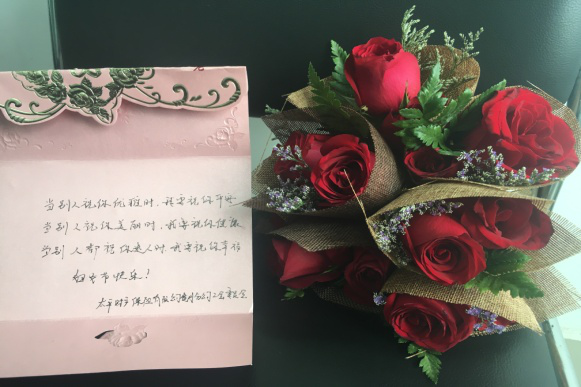 当别人说你优雅时，我要说你平安
当别人说你美丽时，我要说你健康
当别人都夸你迷人时，我要说你幸福
妇女节快乐！
太平财产保险有限公司分公司工会